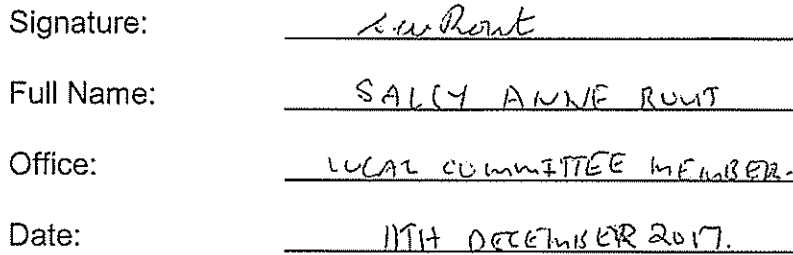 Signature:
Full Name: SALLY ANNE ROUT
Office: LOCAL COMMITTEE MEMBER.
Date: 11TH DECEMBER 2017.